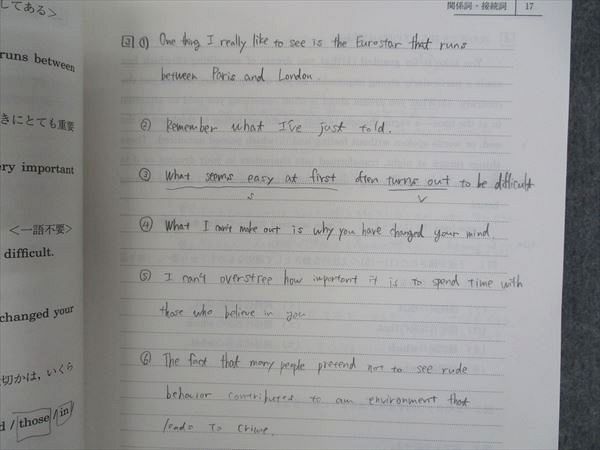 関係詞・接続詞 17
してある＞
runs between
きにとても重要
ery important
＜一語不要＞
difficult.
changed your
切かは，いくら
d / those / in
3 ① One thing I really like to see is the Eurostar that runs
between Paris and London.
② Remember what I've just told.
③ What seems easy at first often turns out to be difficult
S V
④ What I can't make out is why you have changed your mind.
⑤ I can't overstree how important it is to spend time with
those who believe in you
⑥ The fact that many people pretend not to see rude
behavior contributes to an environment that
leads to crime.